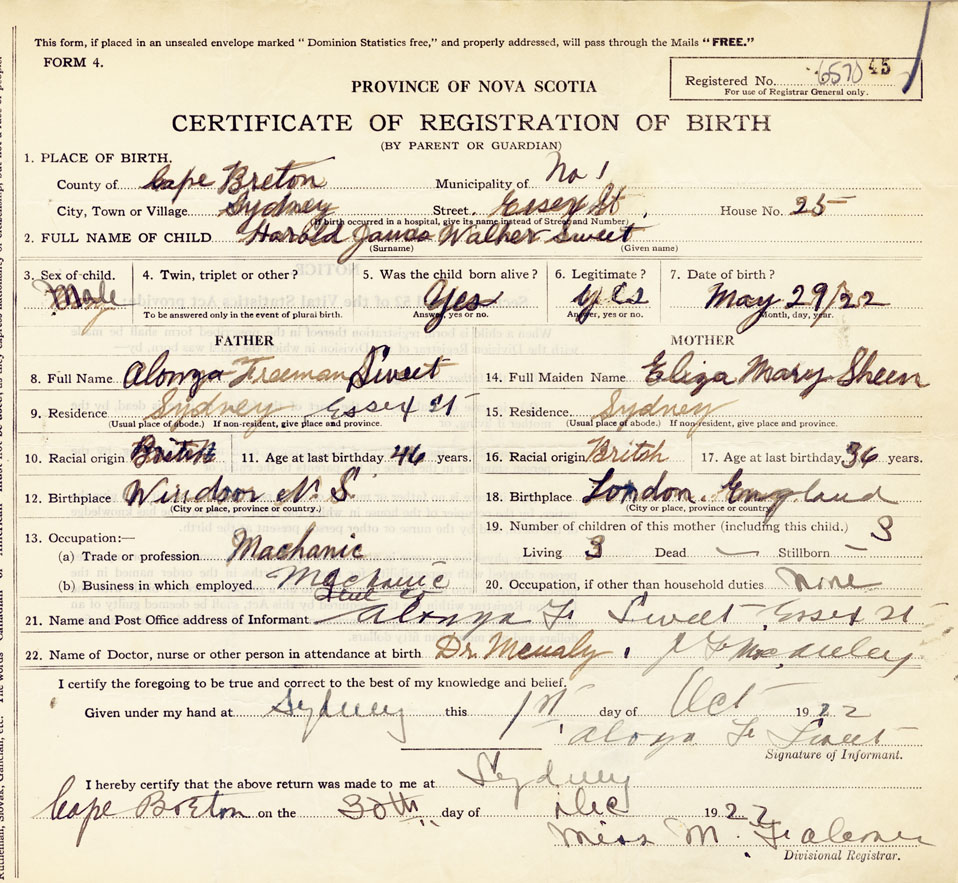 This form, if placed in an unsealed envelope marked "Dominion Statistics free," and properly addressed, will pass through the Mails "FREE."
FORM 4.
Registered No. 6570 45
For use of Registrar General only.
PROVINCE OF NOVA SCOTIA
CERTIFICATE OF REGISTRATION OF BIRTH
(BY PARENT OR GUARDIAN)
1. PLACE OF BIRTH.
County of Cape Breton Municipality of No 1
City, Town or Village Sydney Street Essex St. House No. 25
(If birth occurred in a hospital, give its name instead of Street and Number)
2. FULL NAME OF CHILD Harold James Walker Sweet
(Surname) (Given name)
3. Sex of child. 4. Twin, triplet or other? 5. Was the child born alive? 6. Legitimate? 7. Date of birth?
Male Yes yes May 29/22
To be answered only in the event of plural birth. Answer, yes or no. Answer, yes or no. Month, day, year.
FATHER MOTHER
8. Full Name Alonza Freeman Sweet 14. Full Maiden Name Eliza Mary Sheen
9. Residence Sydney Essex St 15. Residence Sydney
(Usual place of abode.) If non-resident, give place and province. (Usual place of abode.) If non-resident, give place and province.
10. Racial origin British 11. Age at last birthday 46 years. 16. Racial origin Britsh 17. Age at last birthday 36 years.
12. Birthplace Windsor N. S. 18. Birthplace London. England
(City or place, province or country.) (City or place, province or country.)
13. Occupation:— 19. Number of children of this mother (including this child.) 3
(a) Trade or profession Machanic Living 3 Dead — Stillborn —
(b) Business in which employed Machanic 20. Occupation, if other than household duties none
Steel Co
21. Name and Post Office address of Informant Alonza F. Sweet, Essex St
22. Name of Doctor, nurse or other person in attendance at birth Dr. Mcualy,
I certify the foregoing to be true and correct to the best of my knowledge and belief.
Given under my hand at Sydney this 1st day of Oct 1922
Alonza F. Sweet
Signature of Informant.
I hereby certify that the above return was made to me at Sydney
Cape Breton on the 30th day of Dec 1922
Miss M. Falconer
Divisional Registrar.